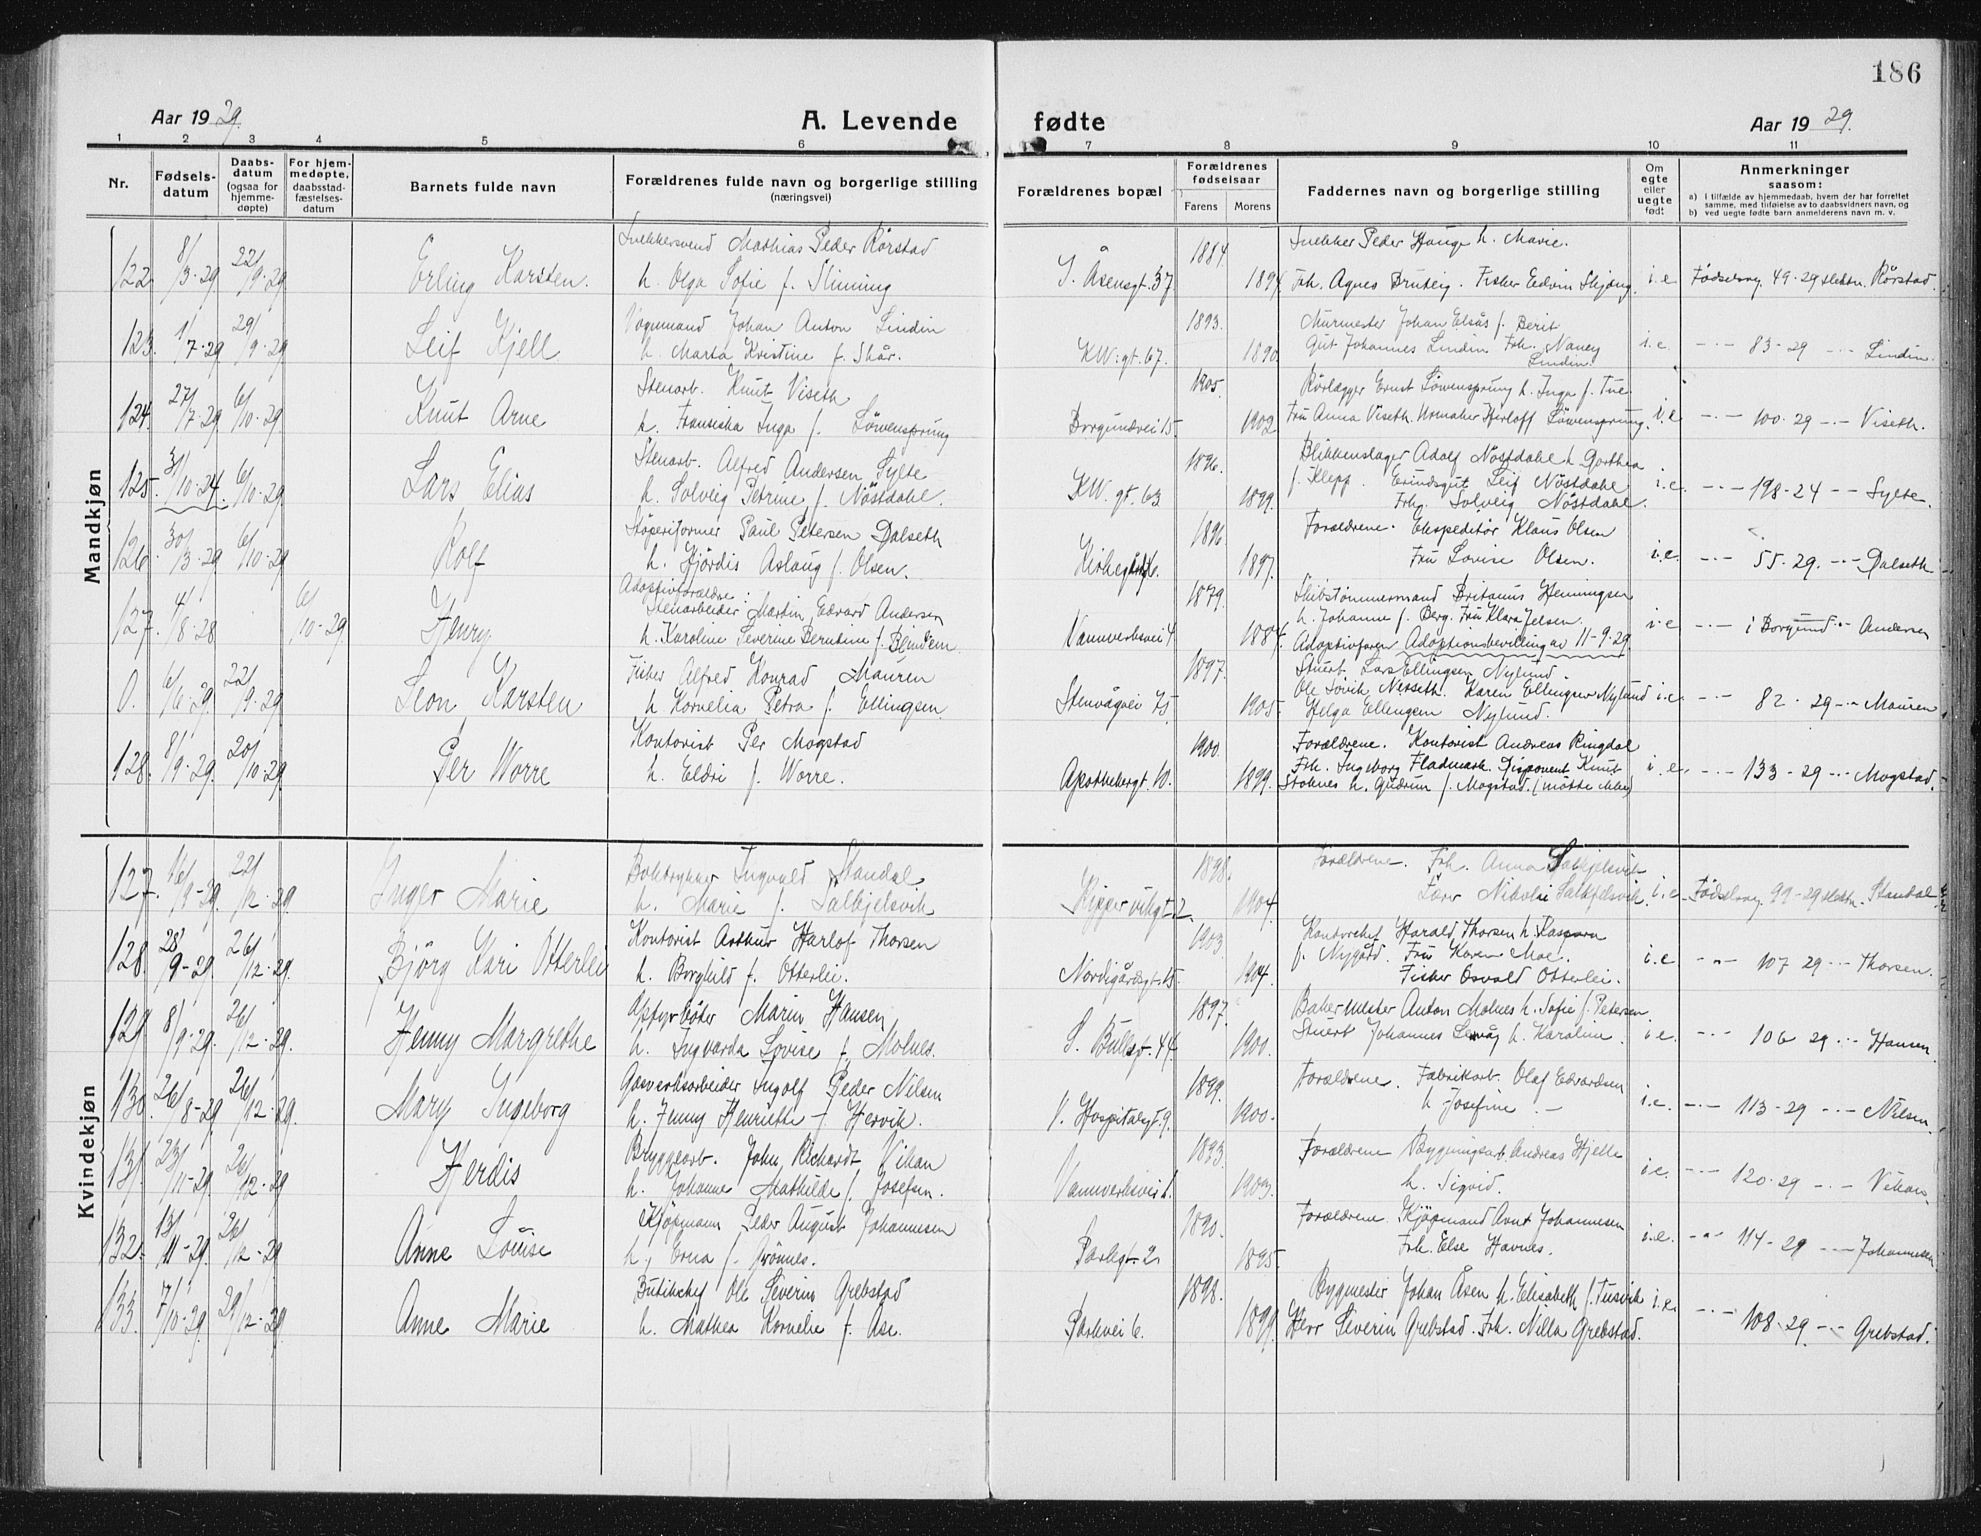 186
Aar 1929.
A. Levende fødte
Aar 1929.
1 2 3 4 5 6 7 8 9 10 11
Nr.
Fødsels-datum
Daabs-datum (ogsaa for hjemme-døpte)
For hjem-medøpte, daabsstad-fæstelses-datum
Barnets fulde navn
Forældrenes fulde navn og borgerlige stilling
(næringsvei)
Forældrenes bopæl
Forældrenes fødselsaar
Farens Morens
Faddernes navn og borgerlige stilling
Om egte eller uegte født
Anmerkninger
saasom:
a) I tilfælde av hjemmedaab, hvem der har forrettet samme, med tilføielse av to daabsvidners navn, og
b) ved uegte fødte barn anmelderens navn m. v.
Mandkjøn
Snekkersvend Mathias Peder Rörstad 1884. Snekker Peder Hauge h. Marie.
122 8/3-29 22/9-29 Erling Karsten. h. Olga Sofie f. Slinning Åsengt. 37 1894. Frk. Agnes Bruteig. Fisker Edvin i.e. Fødselsreg. 49-29 Rörstad.
Johan Anton Lindin 1893. Murmester Johan Elsås f. Berit
123. 1/7-29 29/9-29 Leif Kjell h. Marta Kristine f. Skår. KW. gt. 67. 1890 Gut Johannes Lindin Frk. Nancy Lindin. i.e. -"- 83-29 -"- Lindin.
Stenarb. Knut Viseth 1905. Rörlægger Ernst Löwensprung h. Inga f. Tue
124. 27/7-29 6/10-29 Knut Arne h. Fransiska Inga f. Löwensprung Borgundvei 15. 1902 Fru Anna Viseth. Urmaker Herloff Löwensprung. i.e -"- 100-29 -"- Viseth.
Stenarb. Alfred Andersen Sylte 1896. Blikkenslager Adolf Nöstdahl h. Dorthea
125. 31/10-24. 6/10-29 Lars Elias h. Solveig Petrine f. Nöstdahl. KW. gt. 63 1899. f. Klepp. Leif Nöstdahl Frk. Solveig Nöstdahl. i.e. -"- 198-24 -"- Sylte.
Støperiformer Paul Petersen Dalseth 1896. Forældrene. Ekspeditör Klaus Olsen
126. 30/3-29 6/10-29 Rolf h. Hjördis Aslaug f. Olsen. 1897. Fru Lovise Olsen. i.e. -"- 55-29. -"- Dalseth
Adoptivforældre:
Stenarbeider Martin Edvard Andersen 1879. Skibstömmermand Britanus Henningsen
127. 4/8-28 6/10-29 Henry h. Karoline Severine Berntine f. Blindem Vannverksvei 4. 1884. h. Johanne f. Berg. Fru Klara Jelsen. Adoptivfaren Adoptionsbevilling av 11-9-29. i.e -"- i Borgund -"- Andersen
Fisker Alfred Konrad Mauren 1897. Stuert. Lars Ellingsen Nylund.
0. 6/6-29. 22/9-29 Leon Karsten h. Kornelia Petra f. Ellingsen Stenvågvei 75 1905. Ole Sovik Nerseth. Karen Ellingsen Nylund Helga Ellingsen Nylund. i.e. -"- 82-29 -"- Mauren
Kontorist Per Mogstad 1900. Forældrene. Kontorist Andreas Ringdal
128. 8/9-29. 20/10-29 Per Worre h. Eldri f. Worre. Apothekergt. 10. 1899. Frk. Ingeborg Fladmark. Disponent Knut Stoknes h. Gudrun f. Mogstad. (møtte ikke) i.e. -"- 133-29 -"- Mogstad.
Kvindekjøn
Boktrykker Ingvald Standal 1898. Forældrene. Frk. Anna Salkjelsvik
127. 16/9-29. 22/12-29. Inger Marie h. Marie f. Salkjelsvik 1904. Nikolai Salkjelsvik i.e. Fødselsreg. 99-29 Standal
Kontorist Arthur Harlof Thorsen 1903. Kontorchef Harald Thorsen h. Kaspara
128. 28/9-29. 26/12-29. Björg Kari Otterlei h. Borghild f. Otterlei. 1904. f. Nygård. Fru Karen Moe. Fisker Osvald Otterlei. i.e -"- 107-29 -"- Thorsen.
Marin Hansen 1897. Bakermester Anton Molnes h. Sofie f. Petersen.
129. 8/9-29. 26/12-29. Henny Margrethe h. Ingvarda Lovise f. Molnes. 1900. Stuert Johannes h. Karoline. i.e. -"- 106-29 -"- Hansen.
Gasverksarbeider Ingolf Peder Nilsen 1899. Forældrene. Fabrikarb. Olaf Edvardsen
130. 26/8-29 26/12-29. Mary Ingeborg h. Jenny Henriette f. Hervik. V. Hospitalsgt. 9. 1900. h. Josefine. i.e. -"- 113-29 -"- Nilsen.
Bryggearb. John Richardt Vikan 1893. Forældrene Bygningsarb. Andreas Hjelle
131. 23/11-29. 26/12-29 Herdis h. Johanne Mathilde f. Josefsen. 1903. h. Sigvid. i.e. -"- 120-29 -"- Vikan.
Kjöpmann Peder August Johannesen 1890. Forældrene. Kjöpmand Arnt Johannesen
132. 13/11-29. 26/12-29 Anne Louise h. Erna f. Grönnes. Parkgt. 2. 1895. Frk. Else Havnes. i.e. -"- 114-29 -"- Johannesen
Butikchef Ole Severin Grebstad 1898. Bygmester Johan Åsen h. Elisabeth f. Tusvik
133. 7/10-29. 29/12-29. Anne Marie h. Mathea Kornelie f. Ase. Parkvei 6. 1899. Herr Severin Grebstad. Frk. Nilla Grebstad. i.e. -"- 108-29. -"- Grebstad.